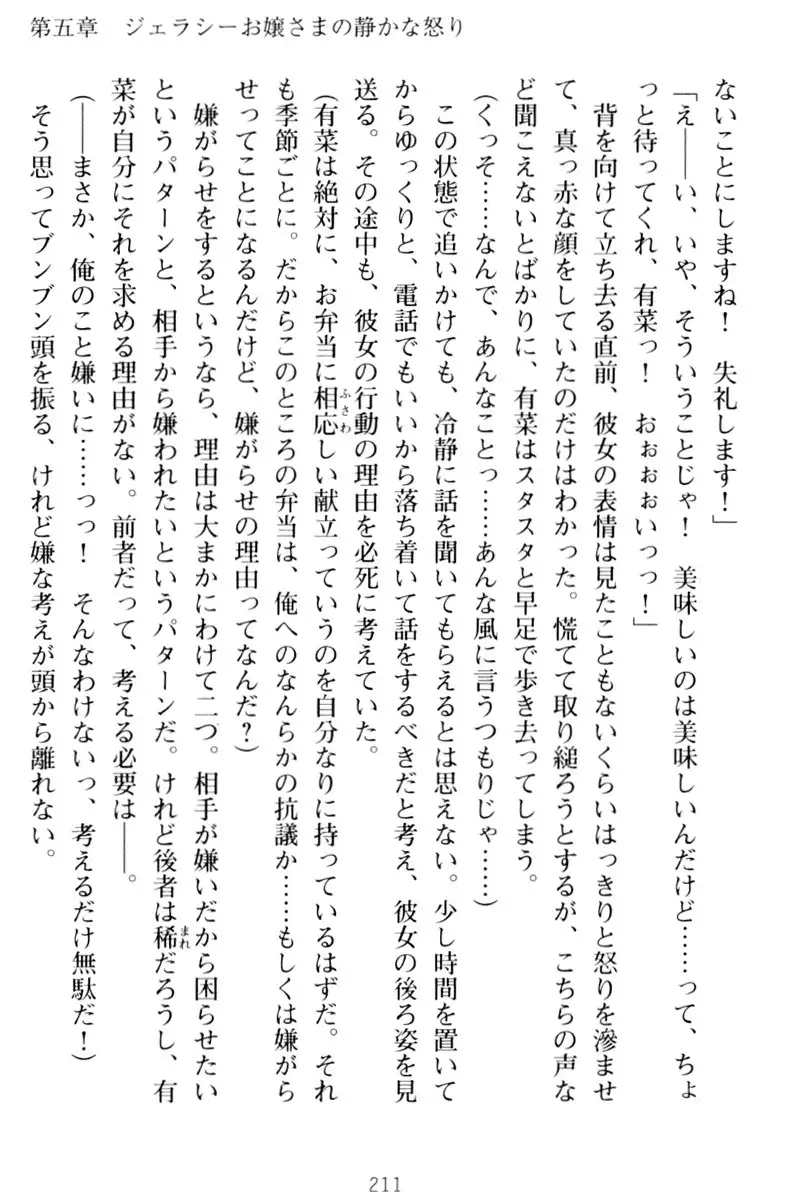 第五章　ジェラシーお嬢さまの静かな怒り
ないことにしますね！　失礼します！」
「え――い、いや、そういうことじゃ！　美味しいのは美味しいんだけど……って、ちょ
っと待ってくれ、有菜っ！　おぉぉぉいっっ！」
　背を向けて立ち去る直前、彼女の表情は見たこともないくらいはっきりと怒りを滲ませ
て、真っ赤な顔をしていたのだけはわかった。慌てて取り縋ろうとするが、こちらの声な
ど聞こえないとばかりに、有菜はスタスタと早足で歩き去ってしまう。
（くっそ……なんで、あんなことっ……あんな風に言うつもりじゃ……）
　この状態で追いかけても、冷静に話を聞いてもらえるとは思えない。少し時間を置いて
からゆっくりと、電話でもいいから落ち着いて話をするべきだと考え、彼女の後ろ姿を見
送る。その途中も、彼女の行動の理由を必死に考えていた。
（有菜は絶対に、お弁当に相応しい献立っていうのを自分なりに持っているはずだ。それ
ふさわ
も季節ごとに。だからこのところの弁当は、俺へのなんらかの抗議か……もしくは嫌がら
せってことになるんだけど、嫌がらせの理由ってなんだ？）
　嫌がらせをするというなら、理由は大まかにわけて二つ。相手が嫌いだから困らせたい
というパターンと、相手から嫌われたいというパターンだ。けれど後者は稀だろうし、有
まれ
菜が自分にそれを求める理由がない。前者だって、考える必要は――。
（――まさか、俺のこと嫌いに……っっ！　そんなわけないっ、考えるだけ無駄だ！）
　そう思ってブンブン頭を振る、けれど嫌な考えが頭から離れない。
211